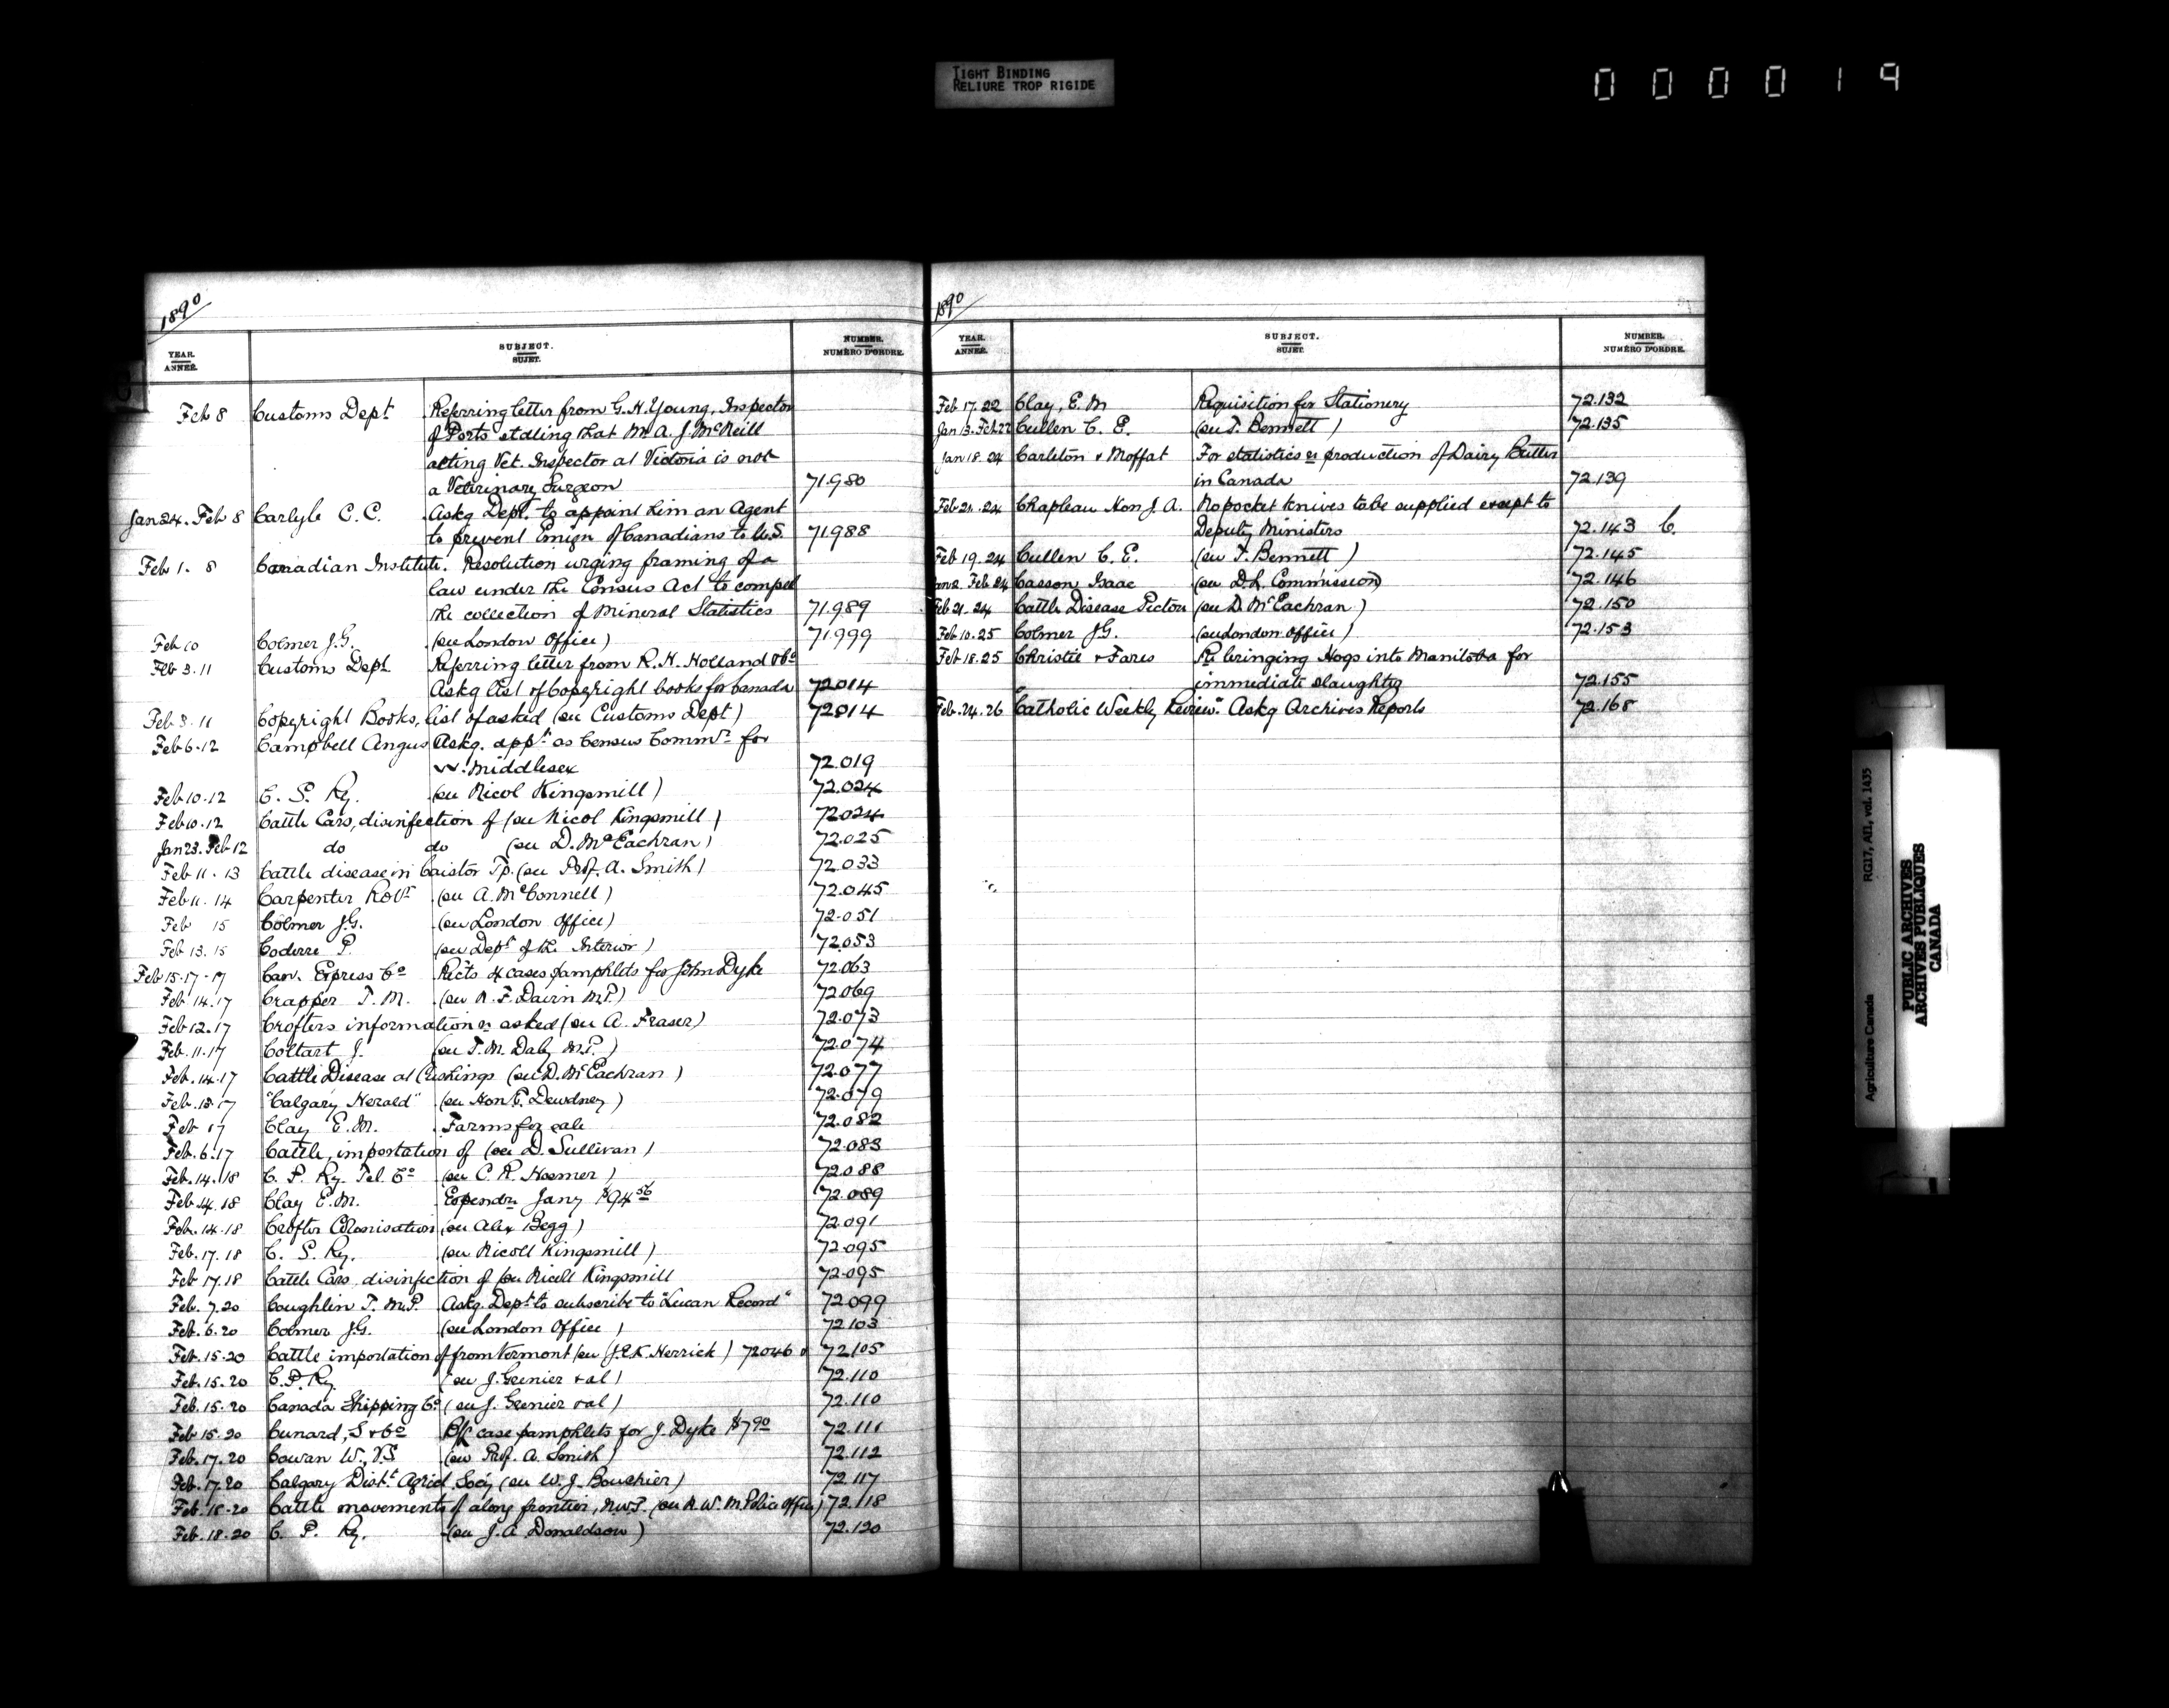 TIGHT BINDING
RELIURE TROP RIGIDE
0 0 0 0 1 9
1890
YEAR. ANNÉE. SUBJECT. SUJET. NUMBER. NUMÉRO D'ORDRE.
Feb 8 Customs Dept Referring letter from G.H. Young, Inspector
of Ports stating that Mr A. J. McNeill
acting Vet. Inspector at Victoria is not
a Veterinary Surgeon 71.980
Jan 24. Feb 8 Carlyle C.C. Askg Dept. to appoint him an Agent
to prevent Emign of Canadians to U.S. 71988
Feb 1. 8 Canadian Institute. Resolution urging framing of a
law under the Census Act to compel
the collection of Mineral Statistics 71.989
Feb 10 Colmer J.G. (see London Office) 71999
Feb 3.11 Customs Dept Referring letter from R.H. Holland & Co
Askg list of Copyright books for Canada 72014
Feb 3.11 Copyright Books, list of asked (see Customs Dept) 72014
Feb 6.12 Campbell Angus Askg. appt as Census Commr for
W. Middlesex 72.019
Feb 10.12 C. S. Ry. (see Nicol Kingsmill) 72.024
Feb 10.12 Cattle Cars, disinfection of (see Nicol Kingsmill) 72024
Jan 23. Feb 12 do do (see D. McEachran) 72.025
Feb 11. 13 Cattle disease in Caistor Tp. (see Prof. A. Smith) 72.033
Feb 11. 14 Carpenter Robt (see A. McConnell) 72.045
Feb 15 Colmer J.G. (see London Office) 72.051
Feb 13. 15 Coderre P. (see Dept of the Interior) 72.053
Feb 15-17-17 Can. Express Co Rects 4 cases pamphlets for John Dyke 72.063
Feb 14.17 Crapper T. M. (see N. F. Davin M.P.) 72.069
Feb 12.17 Crofters information re asked (see A. Fraser) 72.073
Feb. 11.17 Coltart J. (see T.M. Daly M.P.) 72.074
Feb. 14.17 Cattle Disease at (see D. McEachran) 72.077
Feb. 13.17 "Calgary Herald" (see Hon E. Dewdney) 72.079
Feb 17 Clay E.M. Farms for sale 72.082
Feb. 6.17 Cattle, importation of (see D. Sullivan) 72.083
Feb. 14.18 C. P. Ry. Tel. Co (see C. R. Hosmer) 72.088
Feb. 14.18 Clay E.M. Expendre Jany $94 56 72.089
Feb. 14.18 Crofter Colonisation (see Alex Begg) 72.091
Feb. 17.18 C. S. Ry. (see Nicoll Kingsmill) 72.095
Feb 17.18 Cattle Cars, disinfection of (see Nicoll Kingsmill 72.095
Feb. 7.20 Coughlin T. M.P. Askg. Dept to subscribe to "Lucan Record" 72.099
Feb. 6.20 Colmer J.G. (see London Office) 72.103
Feb. 15.20 Cattle importation of from Vermont (see J.E.K. Herrick) 72046 & 72.105
Feb. 15.20 C.P. Ry (see J. Grenier & al) 72.110
Feb. 15.20 Canada Shipping Co (see J. Grenier & al) 72.110
Feb 15.20 Cunard, S & Co case pamphlets for J. Dyke $7 90 72.111
Feb. 17.20 Cowan W., V.S (see Prof. A. Smith) 72.112
Feb. 17.20 Calgary Distt Agricl Socy (see W. J. Bouchier) 72.117
Feb. 18.20 Cattle movements of along frontier, N.W.T. (see N.W. M Police Office) 72.118
Feb. 18.20 C. P. Ry. (see J. A. Donaldson) 72.120
1890
YEAR. ANNÉE. SUBJECT. SUJET. NUMBER. NUMÉRO D'ORDRE.
Feb 17.22 Clay, E. M Requisition for Stationery 72.132
Jan 13. Feb 22 Cullen C. E. (see T. Bennett) 72.135
Jan 18.24 Carleton & Moffat For statistics re production of Dairy Butter
in Canada 72.139
Feb 21.24 Chapleau Hon J. A. No pocket knives to be supplied except to
Deputy Ministers 72.143 C.
Feb 19.24 Cullen C. E. (see T. Bennett) 72.145
Feb 24 Casson Isaac (see D.L. Commission) 72.146
Feb 21.24 Cattle Disease Pictou (see D. McEachran) 72.150
Feb 10.25 Colmer J.G. (see London Office) 72.153
Feb 18.25 Christie & Fares Re bringing Hogs into Manitoba for
immediate slaughtg 72.155
Feb. 24.26 "Catholic Weekly Review" Askg Archives Reports 72.168
Agriculture Canada RG17, AII, vol. 1435
PUBLIC ARCHIVES
ARCHIVES PUBLIQUES
CANADA